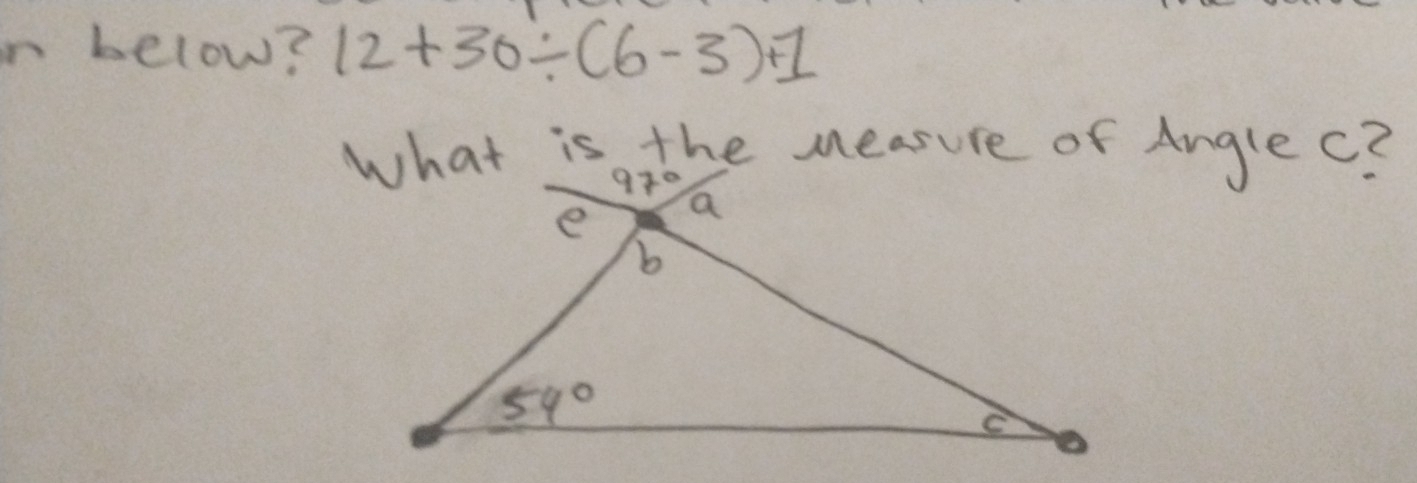 below? 12+30÷(6-3)+1
What is the measure of Angle c?
97°
e a
b
54°
c